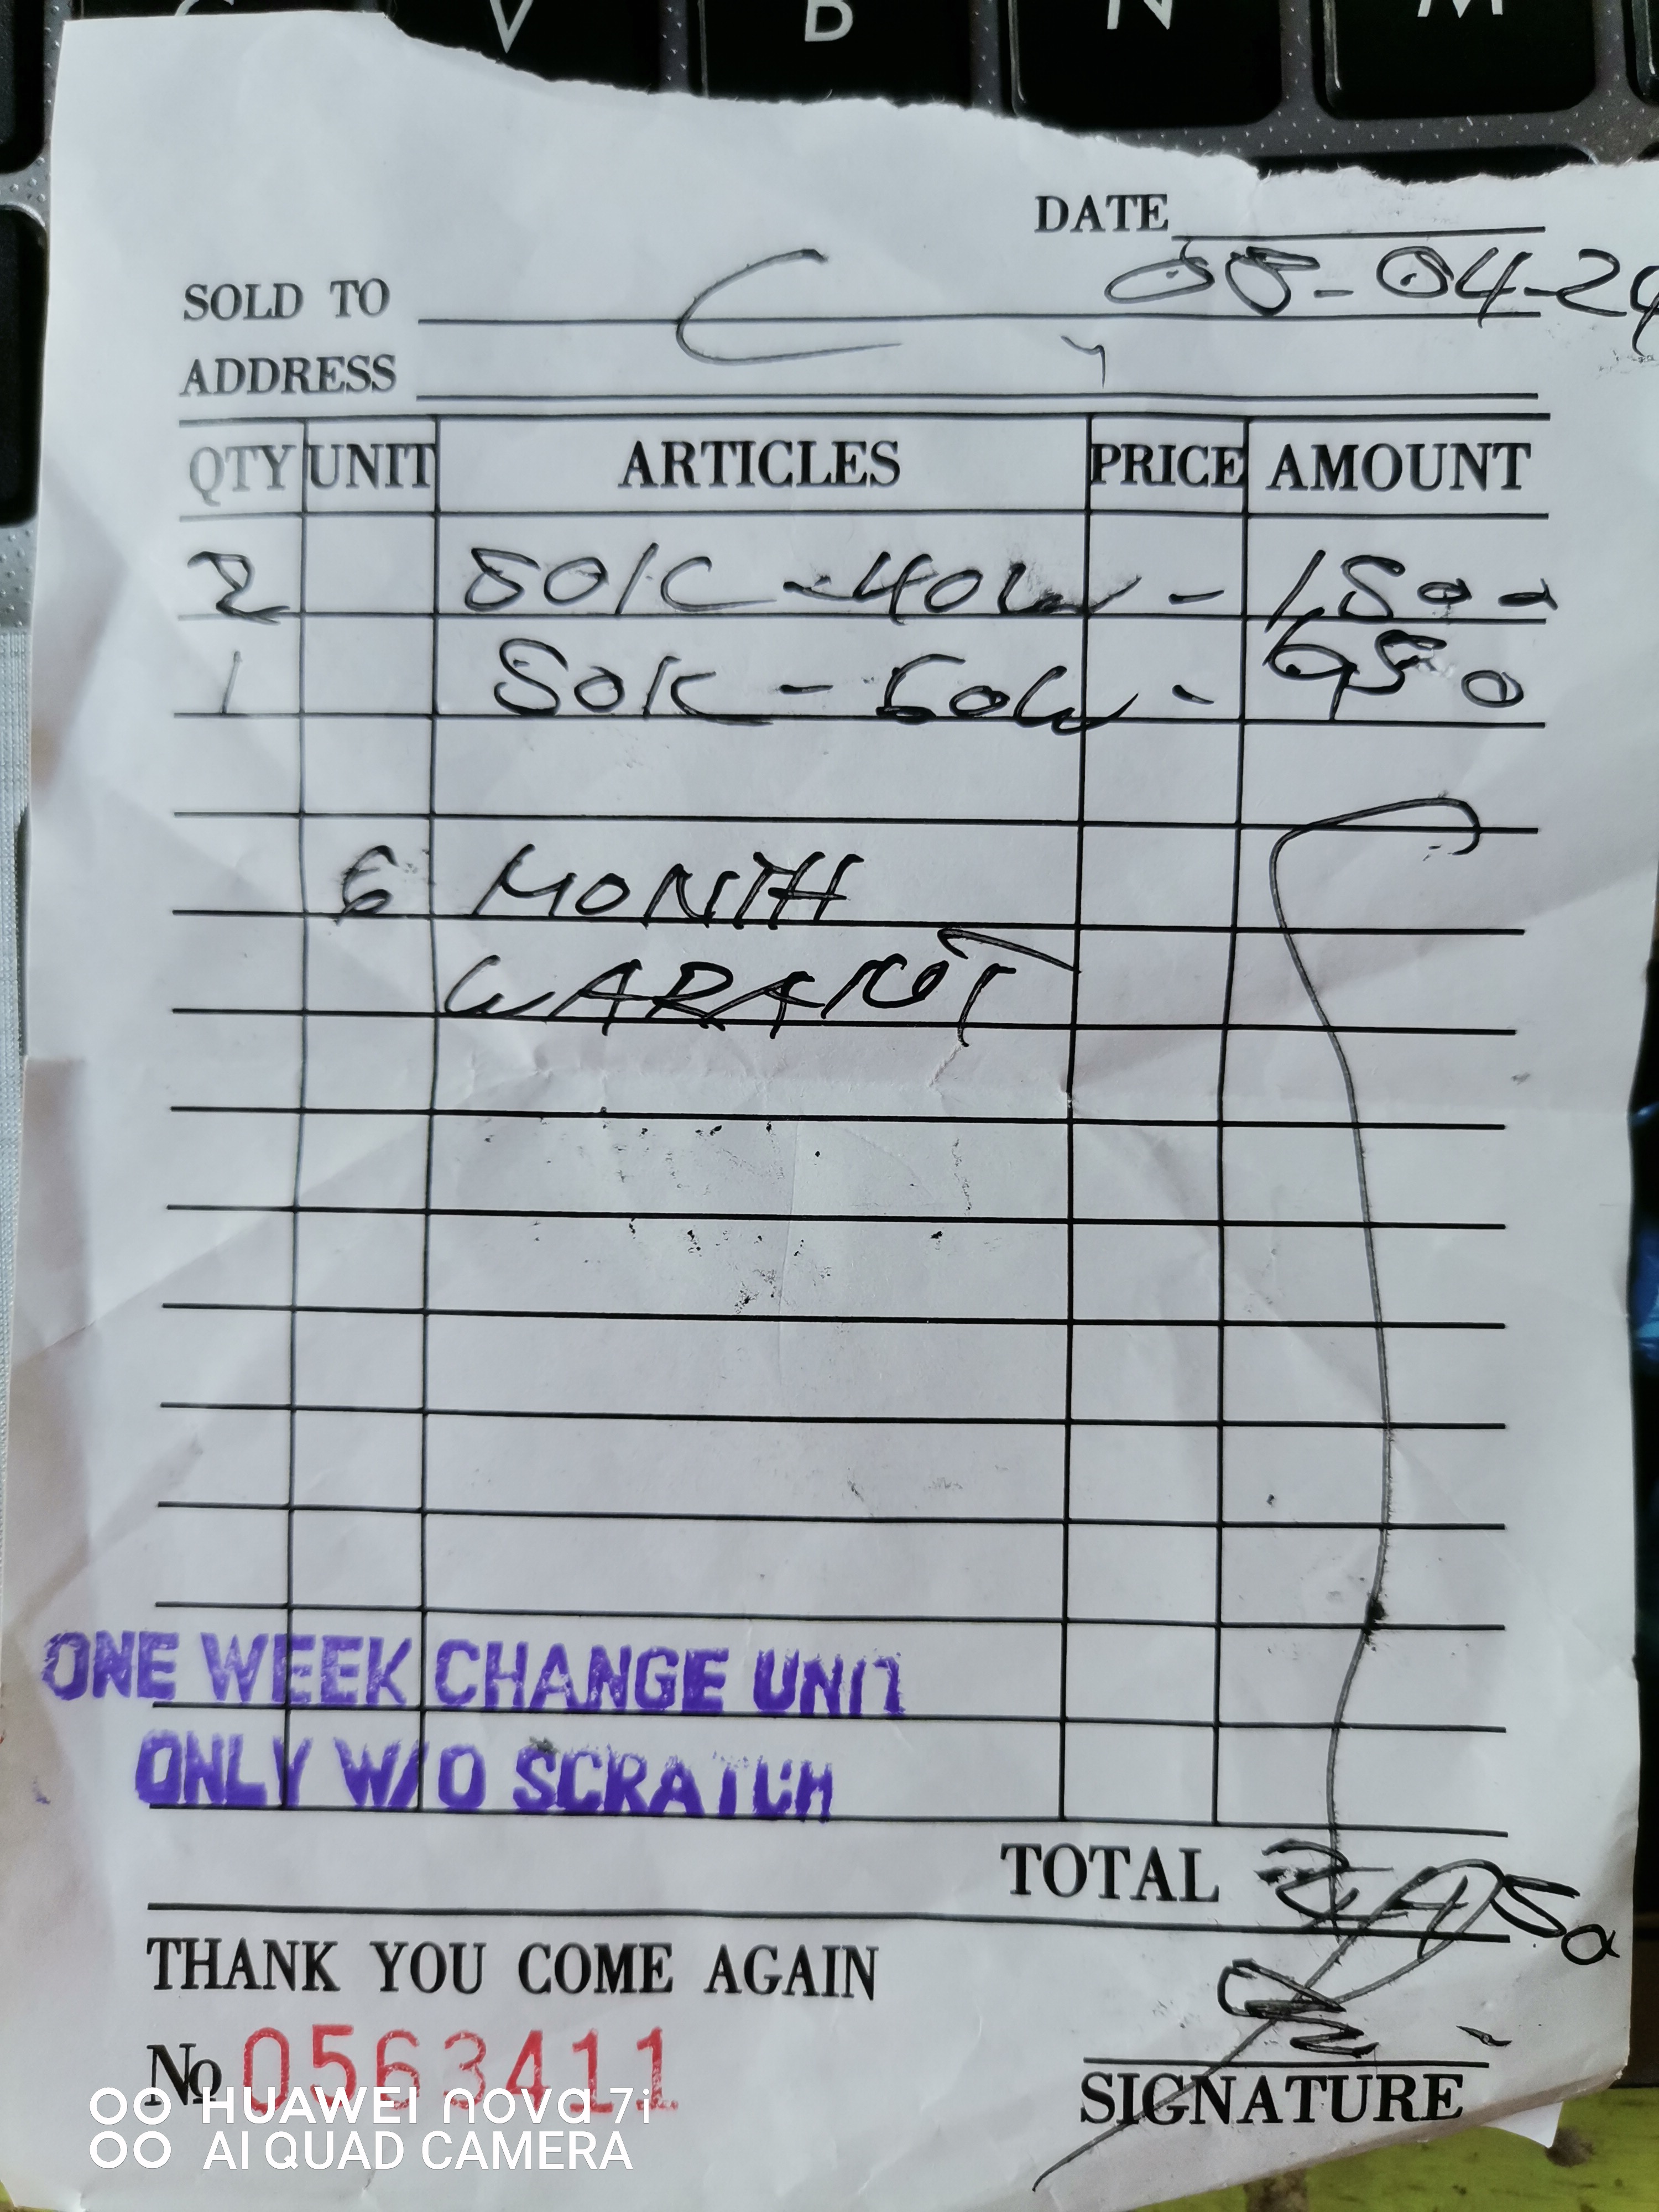 V B N M
DATE
05-04-24
SOLD TO C
ADDRESS
QTY UNIT ARTICLES PRICE AMOUNT
2 50K-40W - 1,500
1 50K - 50W - 950
6 MONTH
WARANT
ONE WEEK CHANGE UNIT
ONLY W/O SCRATCH
TOTAL 2,450
THANK YOU COME AGAIN
No 0563411
SIGNATURE
HUAWEI nova 7i
AI QUAD CAMERA